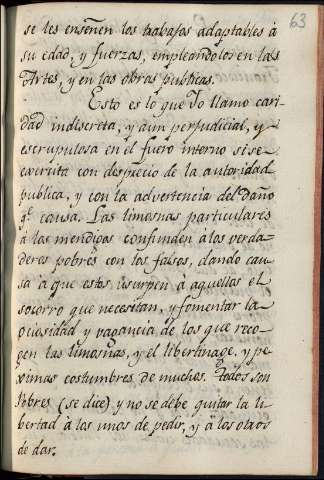 63
se les enseñen los trabajos adaptables à
su edad, y fuerzas, empleandolos en las
Artes, y en las obras publicas.
Esto es lo que Yo llamo cari-
dad indiscreta, y aun perjudicial, y
escrupulosa en el fuero interno si se
exercita con desprecio de la autoridad
publica, y con la advertencia del daño
q.e causa. Las limosnas particulares
à las mendigos confunden à los verda-
deros pobres con los falsos, dando cau-
sa à que estos usurpen à aquellos el
socorro que necesitan, y fomentar la
ociosidad y vagancia de los que reco-
gen las limosnas, y el libertinage, y pe-
simas costumbres de muchos. Todos son
Pobres (se dice) y no se debe quitar la li-
bertad à los unos de pedir, y à los otros
de dar.